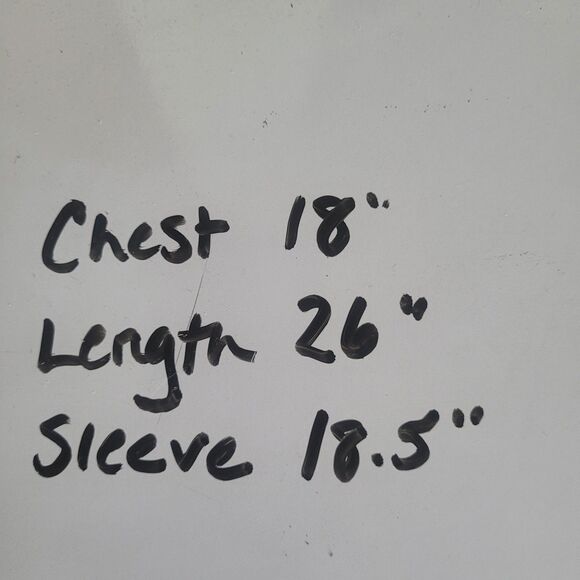 Chest 18"
Length 26"
Sleeve 18.5"